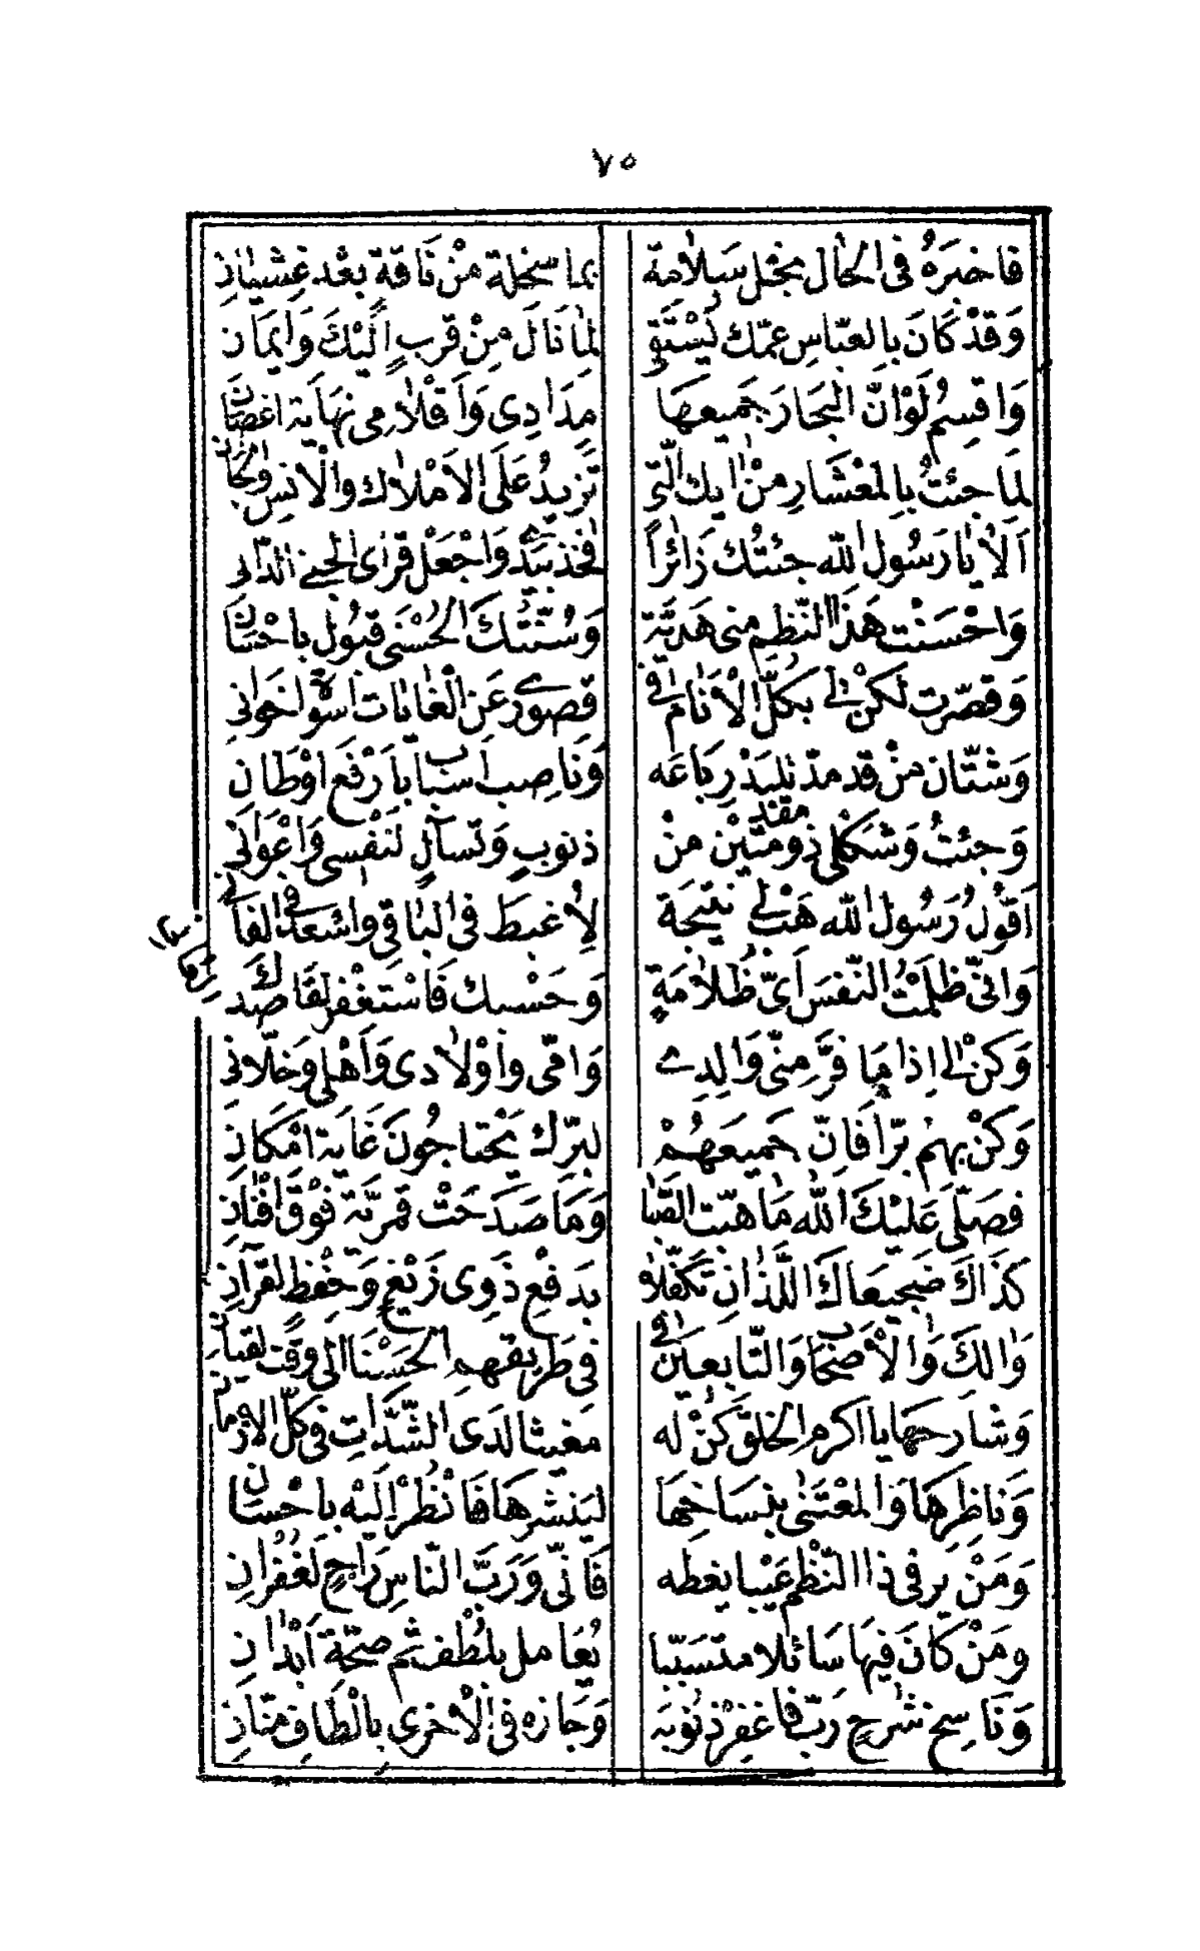 ٧٥
فاخبره فى الحال بخل سلامة بما سخلة من ناقة بعد غشيان
وَقَدْ كَانَ بِالعبّاسِ عمّك يَسْتَقِى لمانَالَ مِنْ قربٍ اِلَيْكَ وَايمان
وَاقسِمُ لَوْ انّ البحَارَ جَميعهَا مِدَادِى وَاَقْلاَمِى نهَاية اغصَان
لمَا جئتُ بِالمعْشَارِ مِنْ اٰيِك الّتى تَزيدُ عَلَى الاَمْلاٰك والْانسِ والجان
اَلاٰ يٰا رَسُول الله جئتُك زَائراً فخذ بيَدى وَاجْعَلْ قرٰاى الجنى الدّانى
وَاحْسَنْت هَذا النّظم منى هَديّة وَسُنّتُكَ الحُسْنَى قبُول باحْسَان
وَقصّرت لكنْ لى بكلّ الْاَنَام فى قصُورى عَن الْغَايات اسوة اخوَانى
وَشتّان مَنْ قد مدّ لليَدْ رِبَاعَه وَنَاصِب اَسبَاب بِاَرْفع اوْطان
وَجئتُ وَشكلى ذو مقدمتَيْن مِنْ ذنوبٍ وَتسآلٍ لنَفْسى وَاعْوَانى
اَقُولُ رَسُول الله هَبْ لى نتيجَة لِاُغبَطَ فى البَاقى واسْعَد فى الفانى
وَانّى ظلَمْتُ النّفسَ اَىّ ظُلاٰمَةٍ وَحَسْبك فَاسْتغْفر لقَاصِدك
وَكنْ لى اِذا مَا فَرَّ مِنّى وَالِدِى وَامّى واوْلاٰدى وَاَهْلى وَخلّانى
وَكنْ بِهمْ برّا فَانّ جميعَهُمْ لبرّك يَحْتاجُونَ غَايَة امْكَان
فصَلّى عَليْكَ اللّٰه مَا هبّت الصّبَا وَمَا صَدَحَتْ قمريّة فَوْقَ افْنَان
كذَاكَ ضجيعَاكَ اللّذَانِ تكفّلاٰ بدَفْعِ ذَوِى زَيْغٍ وَحِفْظٍ لقرآن
وَاٰلكَ وَالْاَصْحَاب وَالتّابعينَ فى طريقهم الحَسْنَا الى وقت لقيان
وَشارحهَا يا اكرم الخلق كنْ له مغيثا لدَى الشّدّاتِ فى كلّ الازمان
وَناظرهَا وَالمعْتَنى بنسَاخهَا ليَنْشرهَا فانْظُرْ اِلَيْه باحْسَان
وَمَنْ يَر فى ذا النّظم عَيْبا يغطه فَانّى وَرَبّ النّاسِ رَاجٍ لغُفْرَان
ومَنْ كَانَ فيهَا سَائلا متسَبّبا يُعَامل بلُطْف ثم صحّة اَبْدَان
وَنَاسِخ شَرحٍ رَبّ فاغفرْ ذنوبَه وَجَازه فى الْاخرى بالْطَافِ منّان